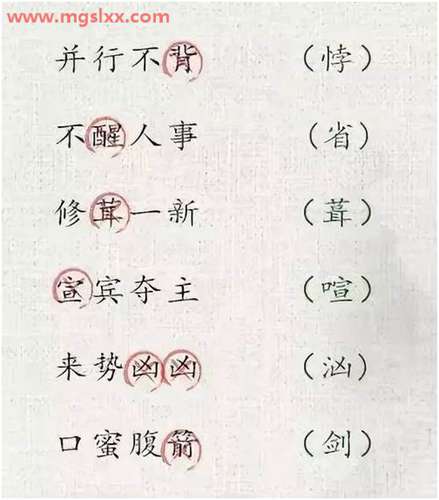 www.mgslxx.com
并行不背 （悖）
不醒人事 （省）
修茸一新 （葺）
宣宾夺主 （喧）
来势凶凶 （汹）
口蜜腹箭 （剑）